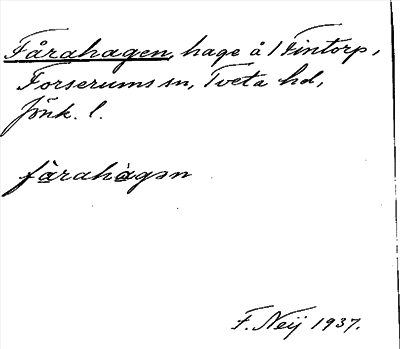 Fårahagen, hage å 1 Fintorp,
Forserums sn, Tveta hd,
Jönk. l.
fårahàgən
F. Neij 1937.